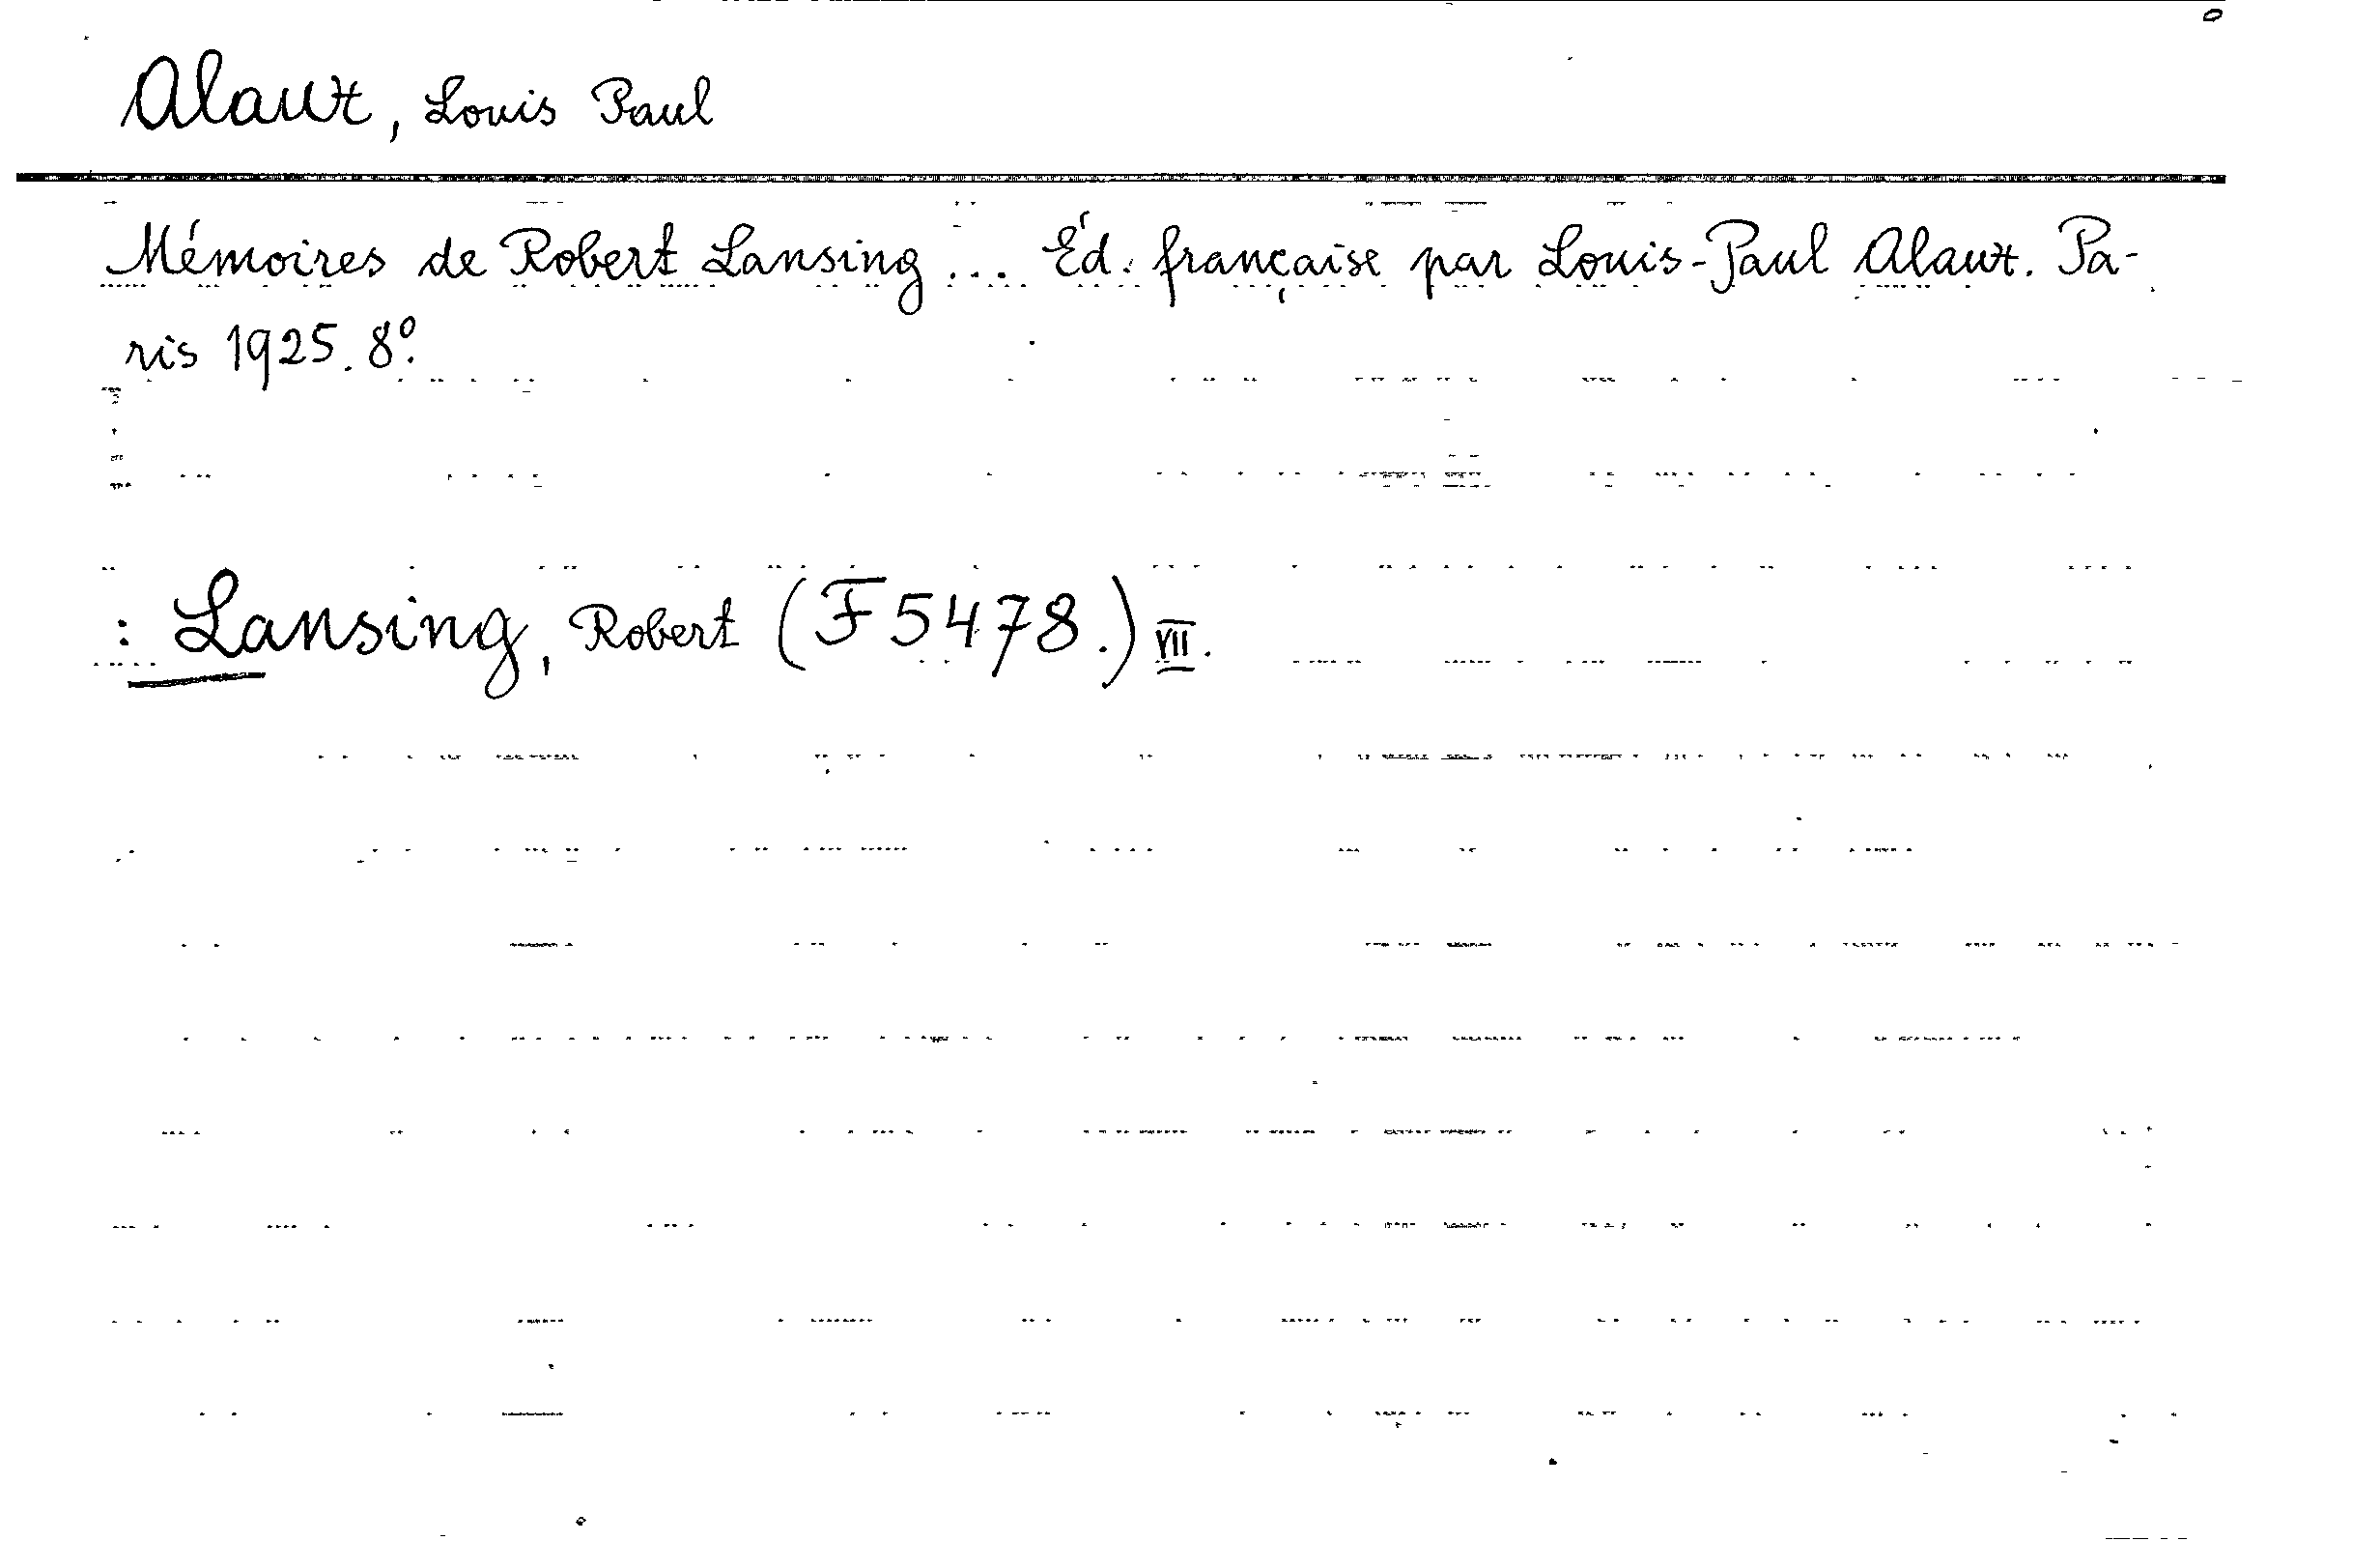 Alaux, Louis Paul
Mémoires de Robert Lansing ... Éd. française par Louis-Paul Alaux. Pa-
ris 1925. 8º.
: Lansing, Robert (F 5478.) VII.